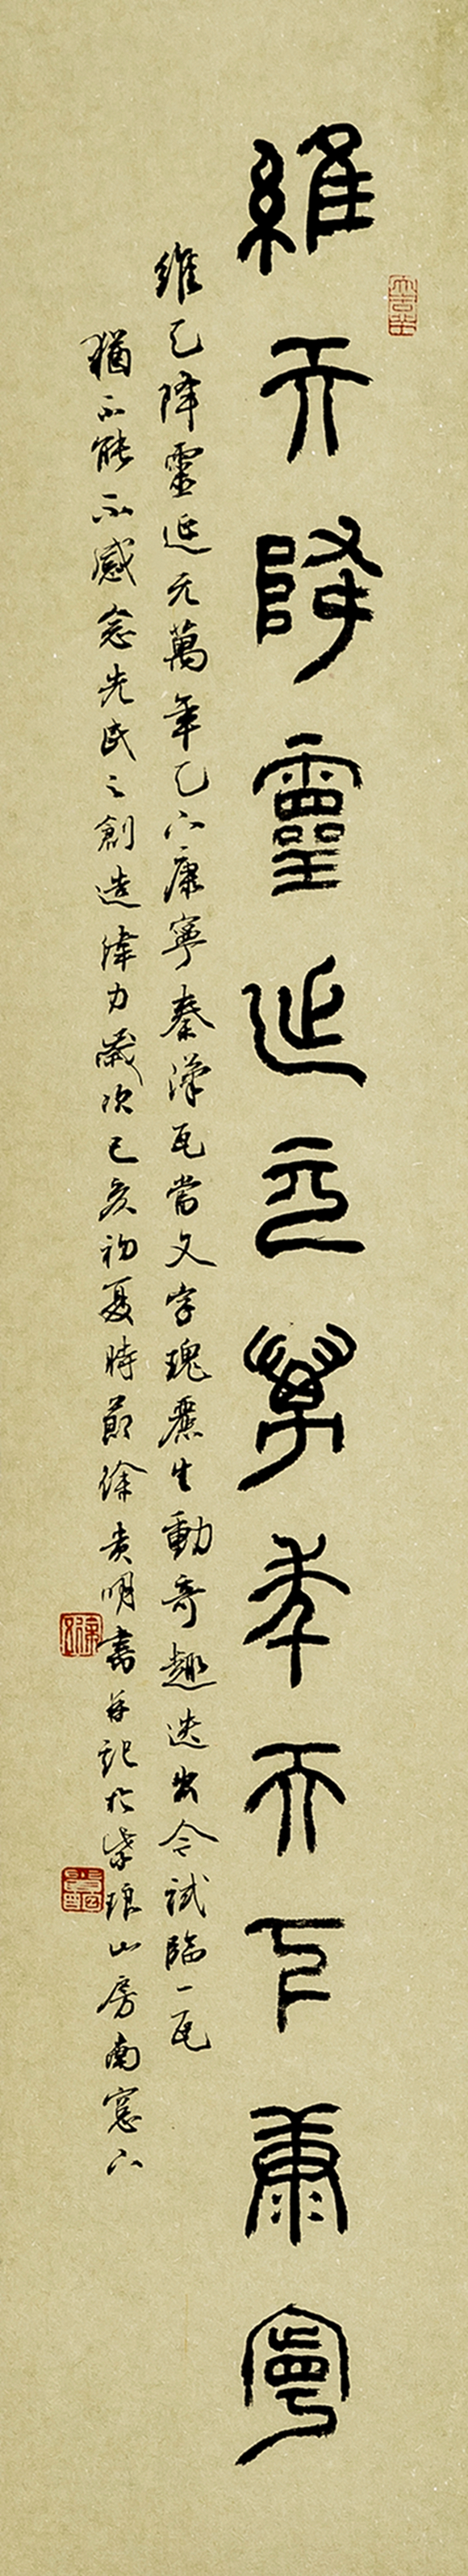 維天降靈延元萬年天下康寧
維天降靈延元萬年天下康寧秦漢瓦當文字瑰麗生動奇趣迭出今試臨一瓦
猶不能不感念先民之創造偉力歲次己亥初夏時節徐貴明書并記於紫琅山房南窓下